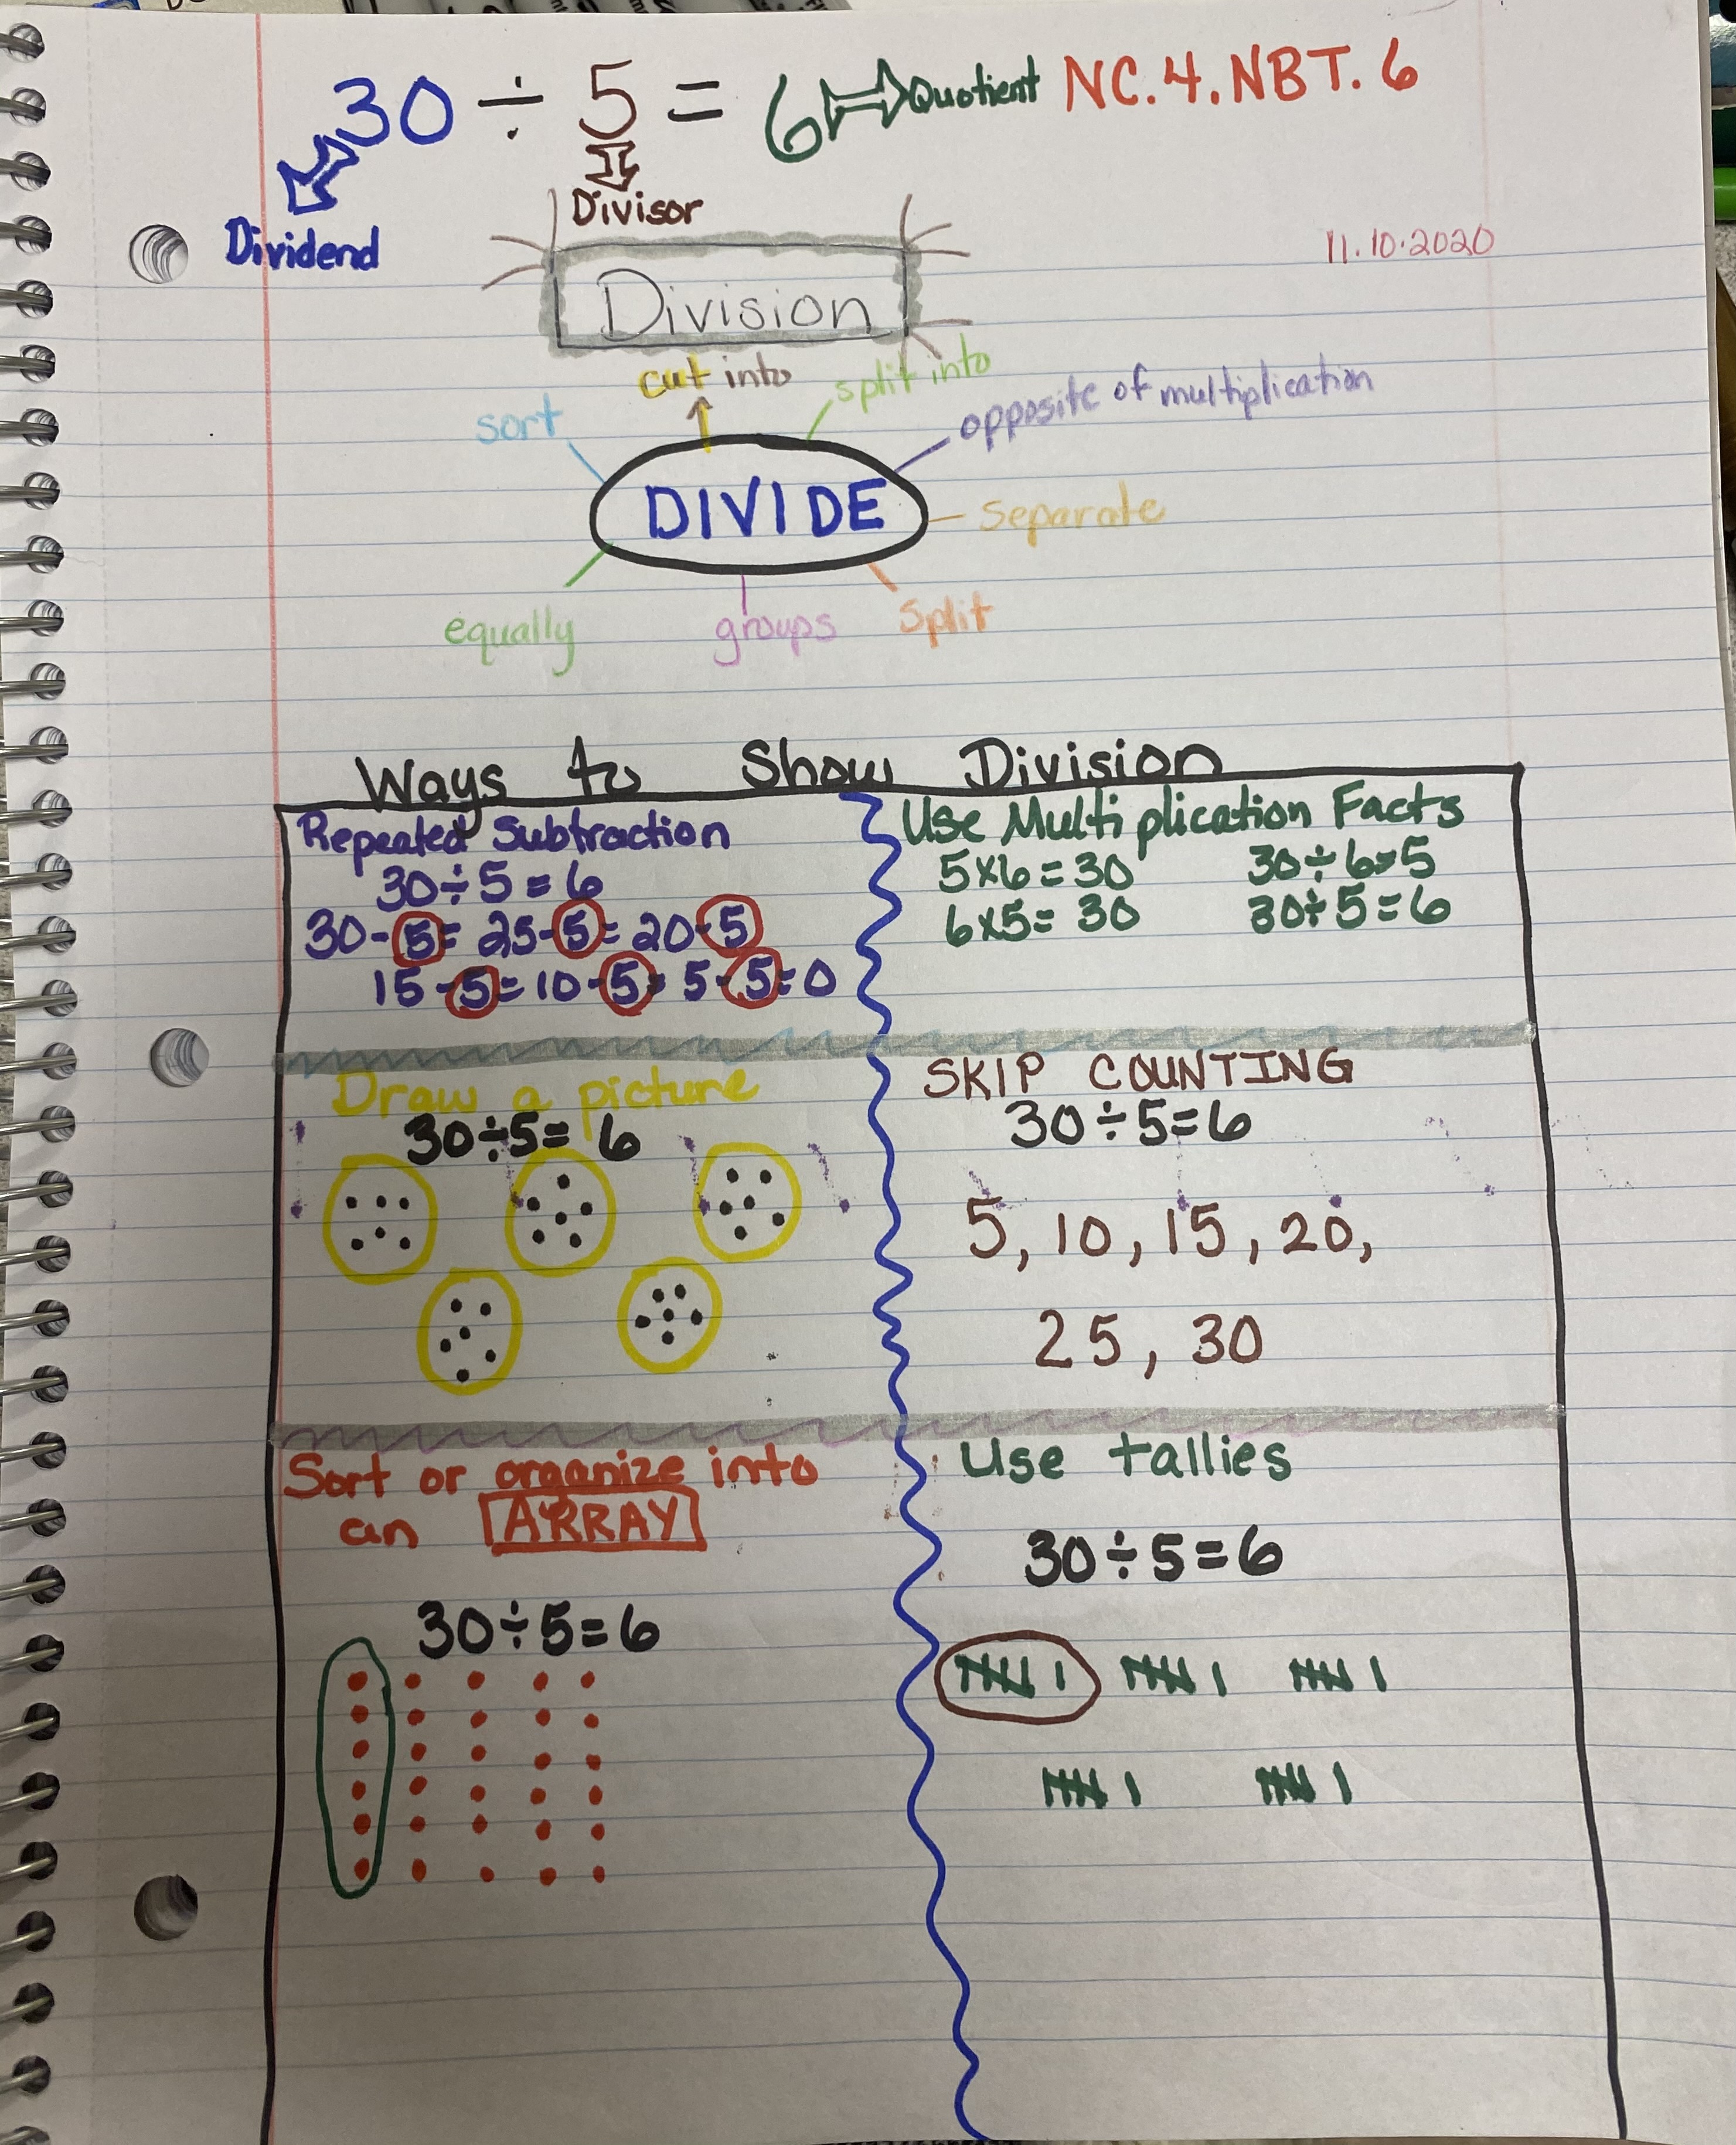 30 ÷ 5 = 6 Quotient NC.4.NBT.6
Divisor
Dividend
11.10.2020
Division
cut into
split into
sort
opposite of multiplication
DIVIDE
separate
equally
groups
split
Ways to Show Division
Repeated Subtraction
30÷5=6
30-5= 25-5= 20-5
15-5=10-5= 5-5=0
Use Multiplication Facts
5x6=30 30÷6=5
6x5=30 30÷5=6
Draw a picture
30÷5=6
SKIP COUNTING
30÷5=6
5, 10, 15, 20,
25, 30
Sort or organize into
an ARRAY
30÷5=6
Use tallies
30÷5=6